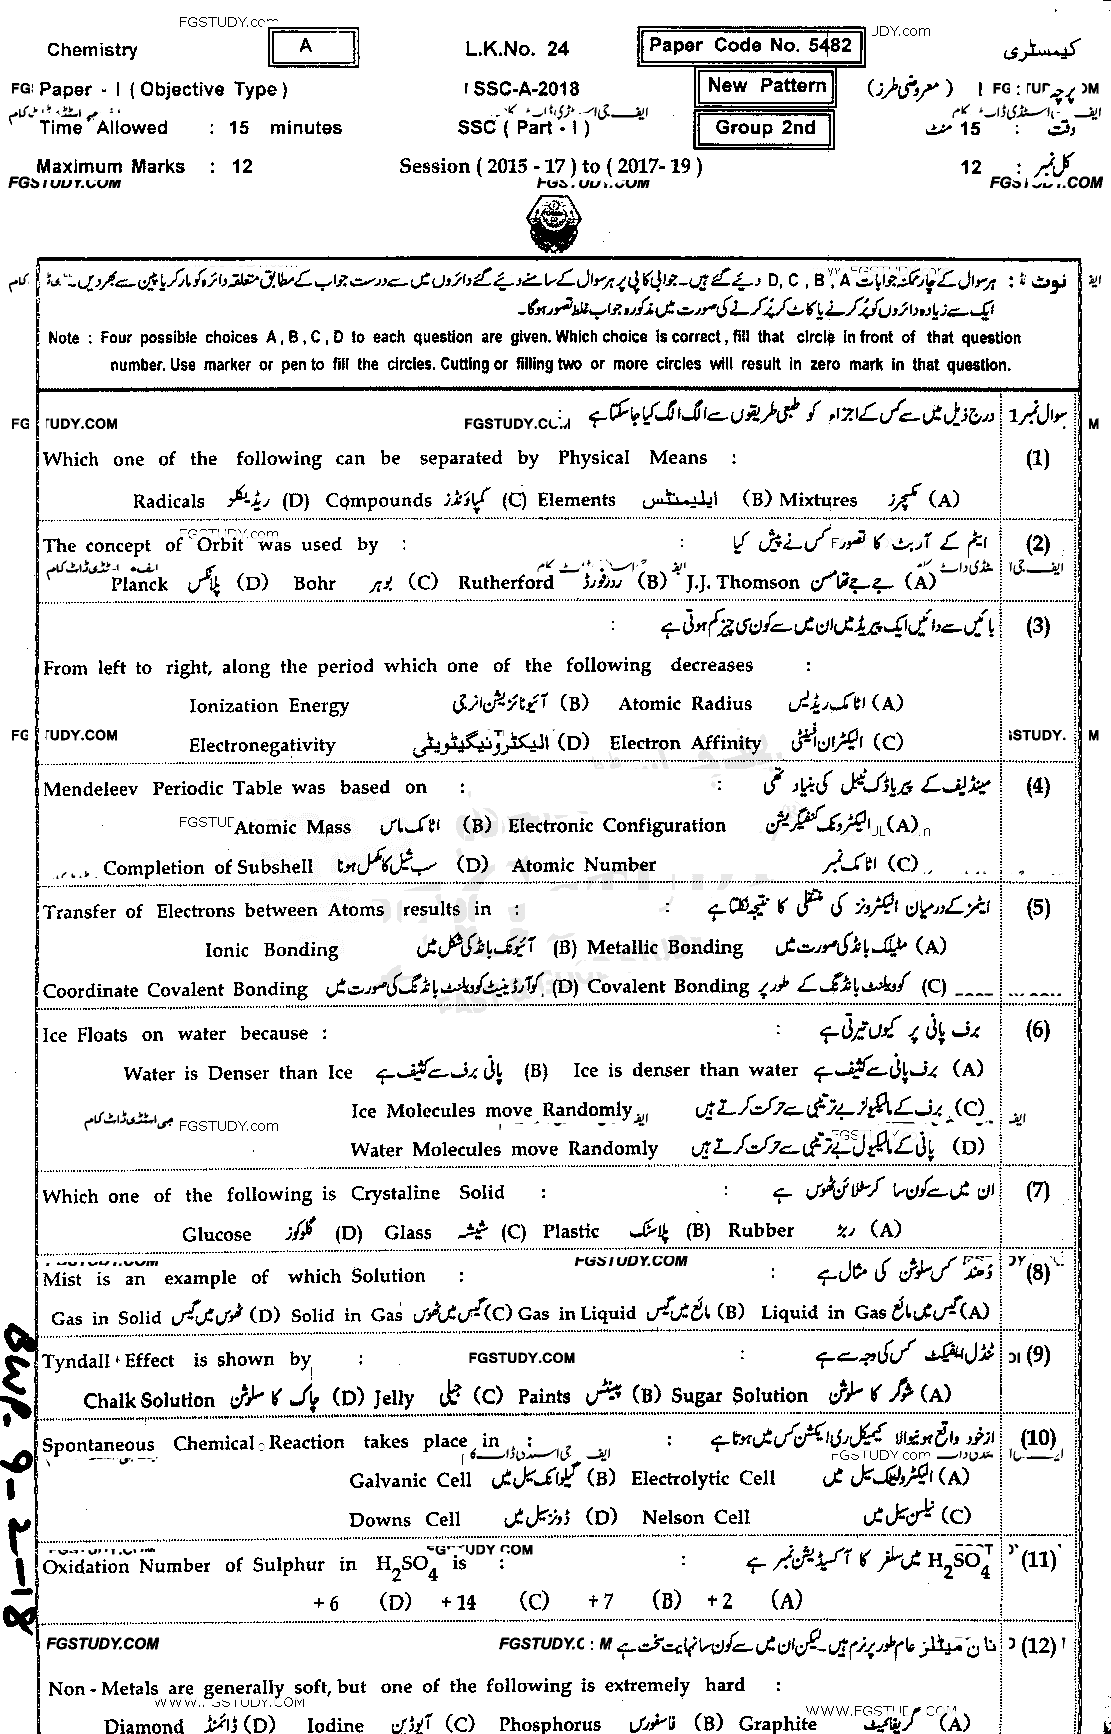 FGSTUDY.com
Chemistry A L.K.No. 24 Paper Code No. 5482 کیمسٹری
Paper - I ( Objective Type ) SSC-A-2018 New Pattern پرچہ I ( معروضی طرز )
Time Allowed : 15 minutes SSC ( Part - I ) Group 2nd وقت : 15 منٹ
Maximum Marks : 12 Session ( 2015 - 17 ) to ( 2017- 19 ) کل نمبر : 12
FGSTUDY.COM FGSTUDY.COM FGSTUDY.COM
نوٹ : ہر سوال کے چار ممکنہ جوابات D, C , B , A دیے گئے ہیں۔ جوابی کاپی پر ہر سوال کے سامنے دیے گئے دائروں میں سے درست جواب کے مطابق متعلقہ دائرہ کو مارکر یا پین سے بھر دیں۔
ایک سے زیادہ دائروں کو پُر کرنے یا کاٹ کر پُر کرنے کی صورت میں مذکورہ جواب غلط تصور ہوگا۔
Note : Four possible choices A , B , C , D to each question are given. Which choice is correct , fill that circle in front of that question
number. Use marker or pen to fill the circles. Cutting or filling two or more circles will result in zero mark in that question.
سوال نمبر 1 درج ذیل میں سے کس کے اجزاء کو طبعی طریقوں سے الگ الگ کیا جا سکتا ہے
Which one of the following can be separated by Physical Means : (1)
Radicals ریڈیکلز (D) Compounds کمپاؤنڈز (C) Elements ایلیمنٹس (B) Mixtures مکسچرز (A)
The concept of Orbit was used by : ایٹم کے آربٹ کا تصور کس نے پیش کیا (2)
Planck پلانکس (D) Bohr بوہر (C) Rutherford ردرفورڈ (B) J.J. Thomson جے جے تھامسن (A)
بائیں سے دائیں ایک پیریڈ میں ان میں سے کون سی چیز کم ہوتی ہے : (3)
From left to right, along the period which one of the following decreases :
Ionization Energy آئیونائزیشن انرجی (B) Atomic Radius اٹامک ریڈیس (A)
Electronegativity الیکٹرونیگیٹیویٹی (D) Electron Affinity الیکٹران افینٹی (C)
Mendeleev Periodic Table was based on : مینڈلیف کے پیریاڈک ٹیبل کی بنیاد تھی : (4)
Atomic Mass اٹامک ماس (B) Electronic Configuration الیکٹرونک کنفگریشن (A)
Completion of Subshell سب شیل کا مکمل ہونا (D) Atomic Number اٹامک نمبر (C)
Transfer of Electrons between Atoms results in : ایٹمز کے درمیان الیکٹرونز کی منتقلی کا نتیجہ نکلتا ہے : (5)
Ionic Bonding آئیونک بانڈ کی شکل میں (B) Metallic Bonding مٹیلک بانڈ کی صورت میں (A)
Coordinate Covalent Bonding کوآرڈینیٹ کوویلنٹ بانڈنگ کی صورت میں (D) Covalent Bonding کوویلنٹ بانڈنگ کے طور پر (C)
Ice Floats on water because : برف پانی پر کیوں تیرتی ہے : (6)
Water is Denser than Ice پانی برف سے کثیف ہے (B) Ice is denser than water برف پانی سے کثیف ہے (A)
Ice Molecules move Randomly برف کے مالیکیولز بے ترتیبی سے حرکت کرتے ہیں (C)
FGSTUDY.com
Water Molecules move Randomly پانی کے مالیکیول بے ترتیبی سے حرکت کرتے ہیں (D)
Which one of the following is Crystaline Solid : ان میں سے کون سا کرسٹلائن ٹھوس ہے : (7)
Glucose گلوکوز (D) Glass شیشہ (C) Plastic پلاسٹک (B) Rubber ربڑ (A)
FGSTUDY.COM
Mist is an example of which Solution : دُھند کس سلوشن کی مثال ہے : (8)
Gas in Solid ٹھوس میں گیس (D) Solid in Gas گیس میں ٹھوس (C) Gas in Liquid مائع میں گیس (B) Liquid in Gas گیس میں مائع (A)
Tyndall Effect is shown by : FGSTUDY.COM ٹنڈل ایفیکٹ کس کی وجہ سے ہے : (9)
Chalk Solution چاک کا سلوشن (D) Jelly جیلی (C) Paints پینٹس (B) Sugar Solution شوگر کا سلوشن (A)
Spontaneous Chemical Reaction takes place in : ازخود واقع ہونیوالا کیمیکل ری ایکشن کس میں ہوتا ہے : (10)
Galvanic Cell گیلوانک سیل میں (B) Electrolytic Cell الیکٹرولیٹک سیل میں (A)
Downs Cell ڈونز سیل میں (D) Nelson Cell نیلسن سیل میں (C)
Oxidation Number of Sulphur in H₂SO₄ is : H₂SO₄ میں سلفر کا آکسیڈیشن نمبر ہے : (11)
+6 (D) +14 (C) +7 (B) +2 (A)
FGSTUDY.COM نان میٹلز عام طور پر نرم ہیں۔ لیکن ان میں سے کون سا نہایت سخت ہے (12)
Non - Metals are generally soft, but one of the following is extremely hard :
WWW.FGSTUDY.COM WWW.FGSTUDY.COM
Diamond ڈائمنڈ (D) Iodine آیوڈین (C) Phosphorus فاسفورس (B) Graphite گریفائیٹ (A)
BWP-9-2-18